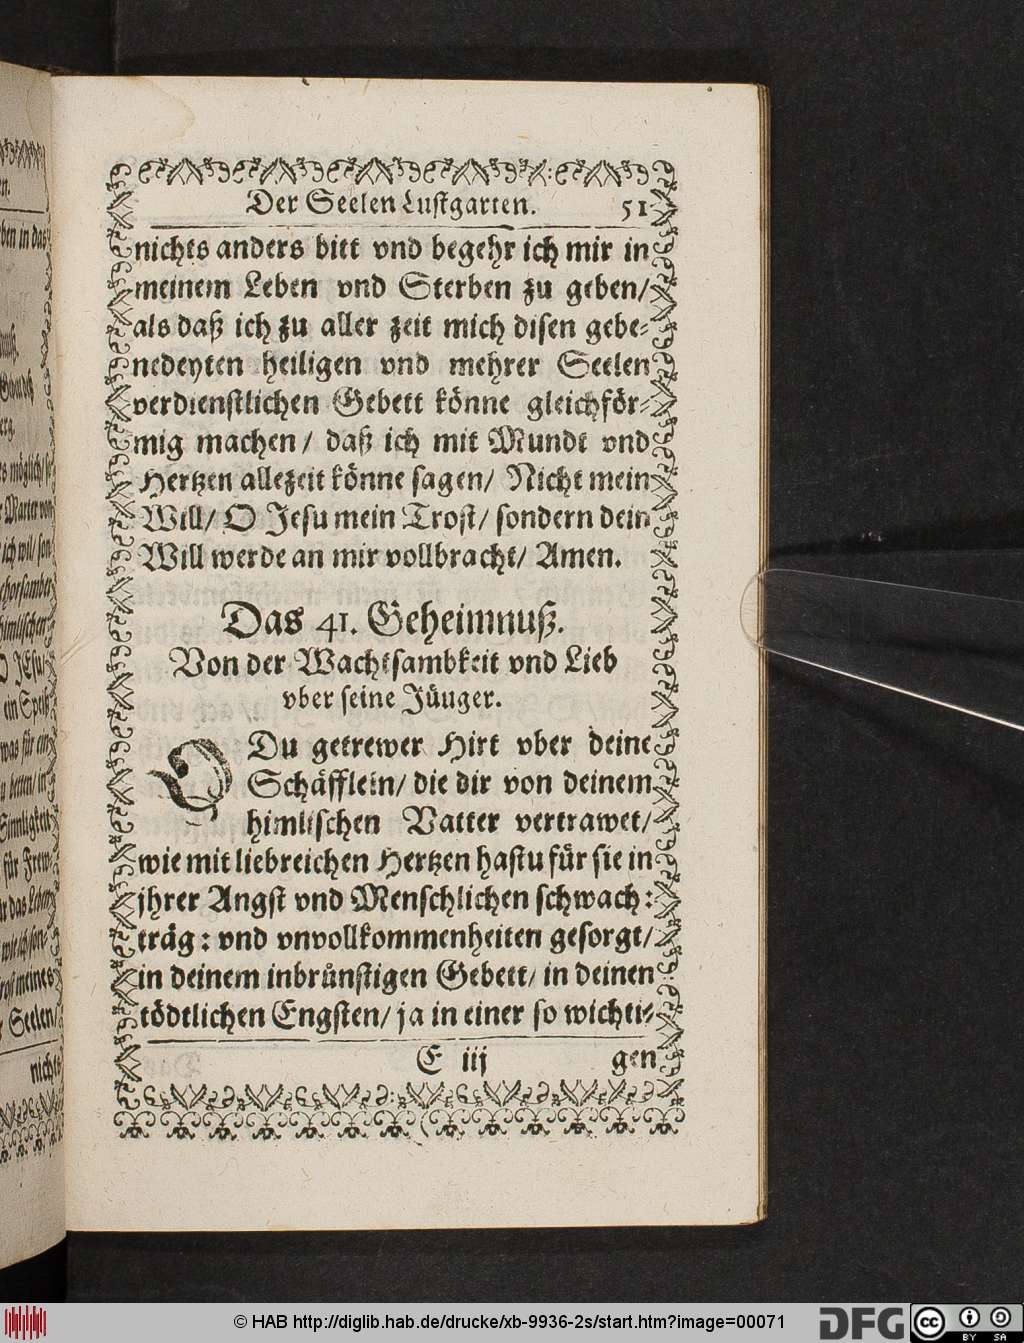 Der Seelen Lustgarten. 51
nichts anders bitt vnd begehr ich mir in
meinem Leben vnd Sterben zu geben/
als daß ich zu aller zeit mich disen gebe-
nedeyten heiligen vnd mehrer Seelen
verdienstlichen Gebett könne gleichför-
mig machen/ daß ich mit Mundt vnd
Hertzen allezeit könne sagen/ Nicht mein
Will/ O Jesu mein Trost/ sondern dein
Will werde an mir vollbracht/ Amen.
Das 41. Geheimnuß.
Von der Wachtsambkeit vnd Lieb
vber seine Jüuger.
O Du getrewer Hirt vber deine
Schäfflein/ die dir von deinem
himlischen Vatter vertrawet/
wie mit liebreichen Hertzen hastu für sie in
jhrer Angst vnd Menschlichen schwach:
träg: vnd vnvollkommenheiten gesorgt/
in deinem inbrünstigen Gebett/ in deinen
tödtlichen Engsten/ ja in einer so wichti-
E iij gen
ben in das
s möglich/
Marter von
ich wil/ son
himlischen
O JEsu/
ein Speiß
was für ein
zu betten/ in
Sinnligkeit
für Frew
meines
Seelen/
nichts
© HAB http://diglib.hab.de/drucke/xb-9936-2s/start.htm?image=00071
DFG
cc
BY SA